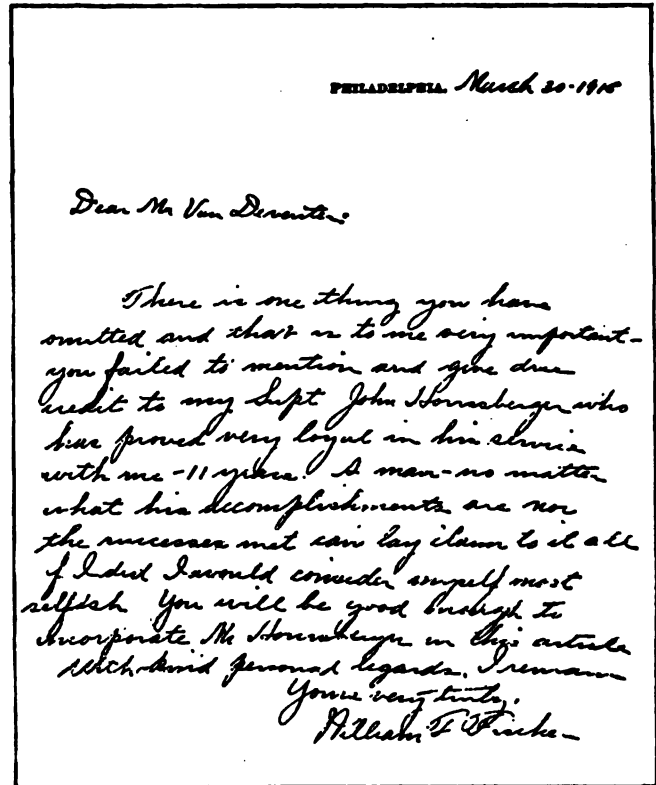 PHILADELPHIA. March 30-1915
Dear Mr Van Deventer:
There is one thing you have
omitted and that is to me very important-
you failed to mention and give due
credit to my Supt John Hounsberger who
has proved very loyal in his service
with me -11 years. A man-no matter
what his accomplishments are nor
the successes met can lay claim to it all
if I did I would consider myself most
selfish You will be good enough to
incorporate Mr Hounsberger in this article
With kind personal regards, I remain
Yours very truly,
William F Fischer